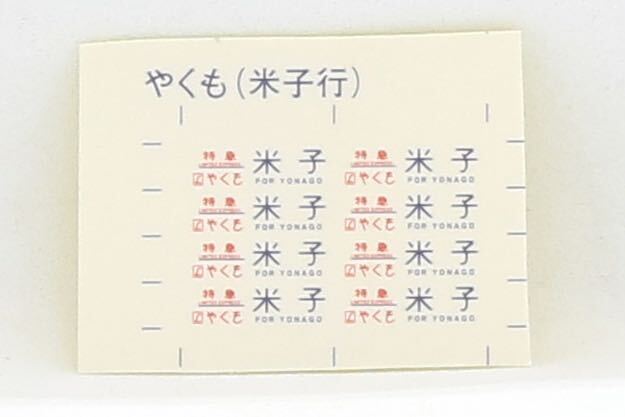 やくも(米子行)
特急 米子 特急 米子
LIMITED EXPRESS LIMITED EXPRESS
やくも FOR YONAGO やくも FOR YONAGO
特急 米子 特急 米子
LIMITED EXPRESS LIMITED EXPRESS
やくも FOR YONAGO やくも FOR YONAGO
特急 米子 特急 米子
LIMITED EXPRESS LIMITED EXPRESS
やくも FOR YONAGO やくも FOR YONAGO
特急 米子 特急 米子
LIMITED EXPRESS LIMITED EXPRESS
やくも FOR YONAGO やくも FOR YONAGO